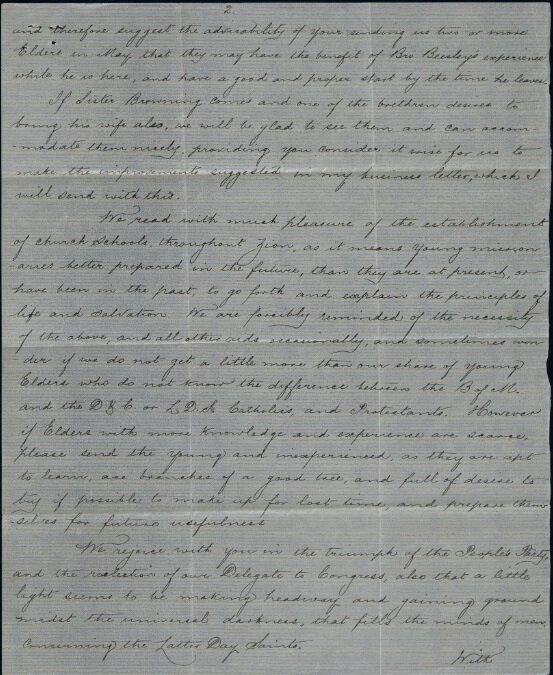 2.
and therefore suggest the advisability of your sending us two or more
Elders in May, that they may have the benefit of Bro Beesley's experience
while he is here, and have a good and proper start by the time he leaves.
If Sister Browning comes and one of the brethren desires to
bring his wife also, we will be glad to see them and can accom-
-modate them nicely, providing you consider it wise for us to
make the improvements suggested in my business letter, which I
will send with this.
We read with much pleasure of the establishment
of church schools, throughout Zion, as it means young mission
aries better prepared in the future, than they are at present, or
have been in the past, to go forth and explain the principles of
life and salvation. We are forcibly reminded of the necessity
of the above, and all other aids occasionally, and sometimes won-
-der if we do not get a little more than our share of young
Elders who do not know the difference between the B of M.
and the D & C. or L.D.S. Catholics, and Protestants. However
if Elders with more knowledge and experience are scarce,
please send the young and inexperienced, as they are apt
to learn, are branches of a good tree, and full of desire to
try if possible to make up for lost time, and prepare them
-selves for future usefulness
We rejoice with you in the triumph of the People's Party,
and the reelection of our Delegate to Congress, also that a little
light seems to be making headway and gaining ground
midst the universal darkness, that fills the minds of men
concerning the Latter Day Saints.
With